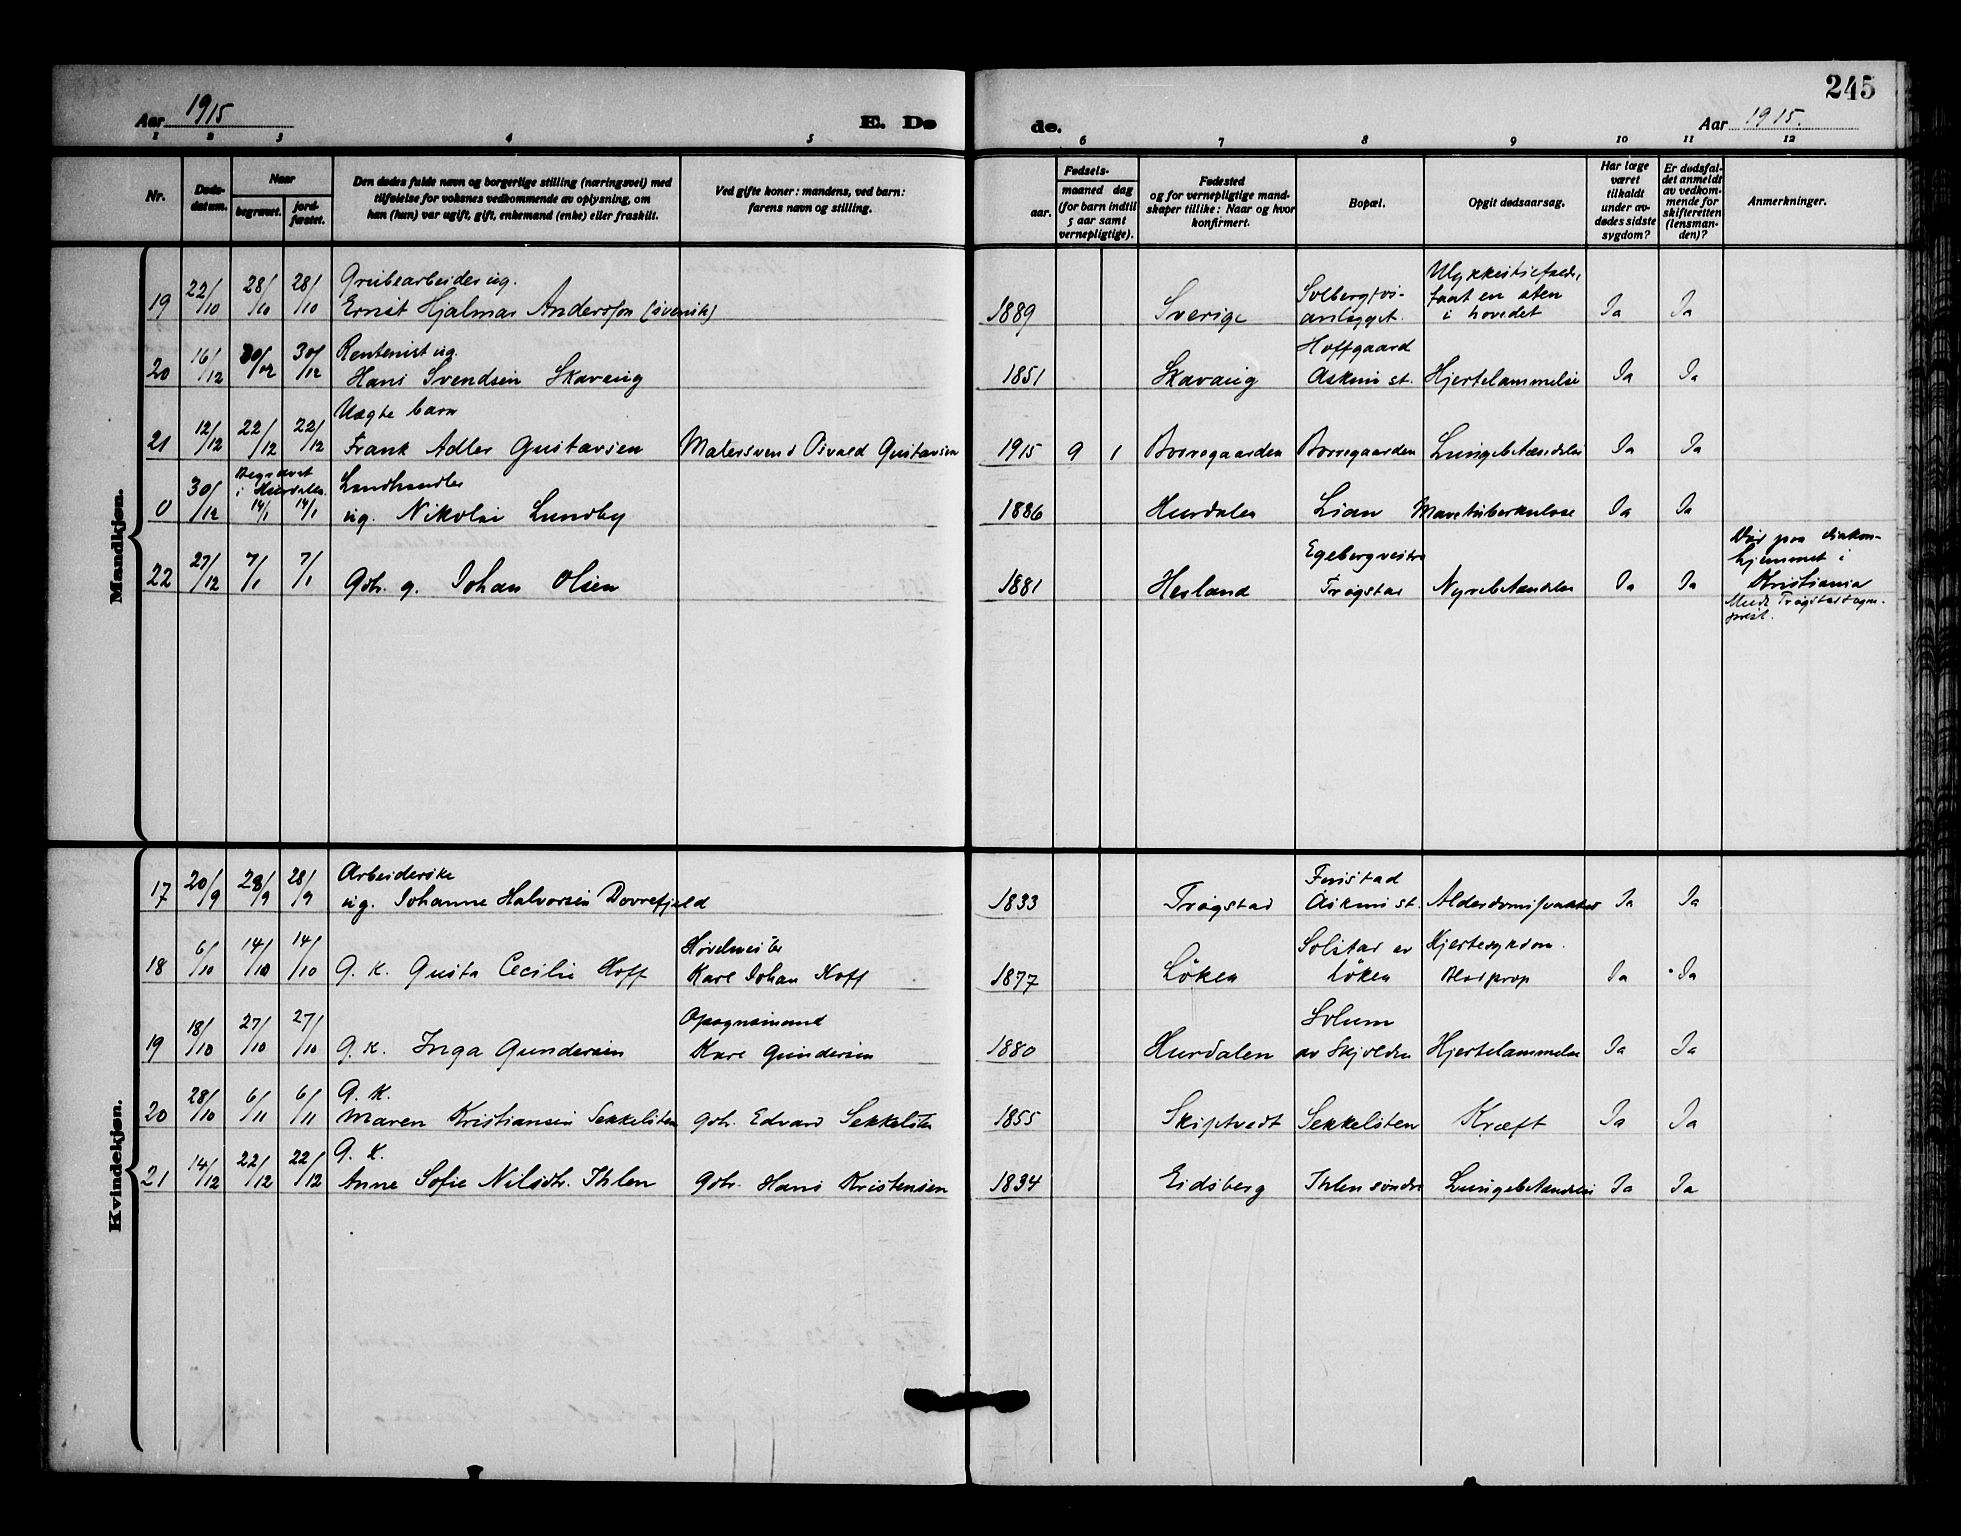 245
Aar 1915
E. Dø
de.
Aar 1915.
1 2 3 4 5 6 7 8 9 10 11 12
Nr.
Døds-
datum.
Naar
begravet.
jord-
fæstet.
Den dødes fulde navn og borgerlige stilling (næringsvei) med
tilføielse for voksnes vedkommende av oplysning, om
han (hun) var ugift, gift, enkemand (enke) eller fraskilt.
Ved gifte koner: mandens, ved barn:
farens navn og stilling.
Fødsels-
aar.
maaned dag
(for barn indtil
5 aar samt
vernepligtige).
Fødested
og for vernepligtige mand-
skaper tillike: Naar og hvor
konfirmert.
Bopæl.
Opgit dødsaarsag.
Har læge
været
tilkaldt
under av-
dødes sidste
sygdom?
Er dødsfal-
det anmeldt
av vedkom-
mende for
skifteretten
(lensman-
den)?
Anmerkninger.
Mandkjøn.
19 22/10 28/10 28/10
Grubearbeider ug.
Ernst Hjalmar Andersson (svensk)
1889 Sverige
Solbergfos-
anlægget.
Ulykkestilfælde,
faat en sten
i hovedet
Ja Ja
20 16/12 30/12 30/12
Rentenist ug.
Hans Svendsen Skavaug
1851 Skavaug
Hoffgaard
Askim st. Hjertelammelse Ja Ja
21 12/12 22/12 22/12
Uægte barn
Frank Adler Gustavsen Malersvend Osvald Gustavsen
1915 9 1 Borregaarden Borregaarden Lungebetændelse Ja Ja
0 30/12
Begravet
i Hurdalen.
14/1 14/1
Landhandler
ug. Nikolai Lundby
1886 Hurdalen Lian Mavetuberkulose Ja Ja
22 27/12 7/1 7/1
Gbr. g. Johan Olsen
1881 Hesland
Egeberg vestre
Trøgstad Nyrebetændelse Ja Ja
Død paa diakon-
hjemmet i
Kristiania
Meldt Trøgstad sogne-
prest.
Kvindekjøn.
17 20/9 28/9 28/9
Arbeiderske
ug. Johanne Halvorsen Dovrefjeld
1833 Trøgstad
Finstad
Askim st. Alderdomssvakhet Ja Ja
18 6/10 14/10 14/10
G. K. Gusta Cecilie Hoff
Høvelmester
Karl Johan Hoff
1877 Löken
Solstad av
Löken
Hjertesykdom.
Blodprop
Ja Ja
19 18/10 27/10 27/10
G. K. Inga Gundersen
Opsynsmand
Karl Gundersen
1880 Hurdalen
Solum
av Skjolden Hjertelammelse Ja Ja
20 28/10 6/11 6/11
G. K.
Maren Kristiansen Sekkelsten gbr. Edvard Sekkelsten
1855 Skiptvedt Sekkelsten Kræft Ja Ja
21 14/12 22/12 22/12
G. K.
Anne Sofie Nilsdtr. Ihlen Gbr. Hans Kristensen
1834 Eidsberg Ihlen søndre Lungebetændelse Ja Ja